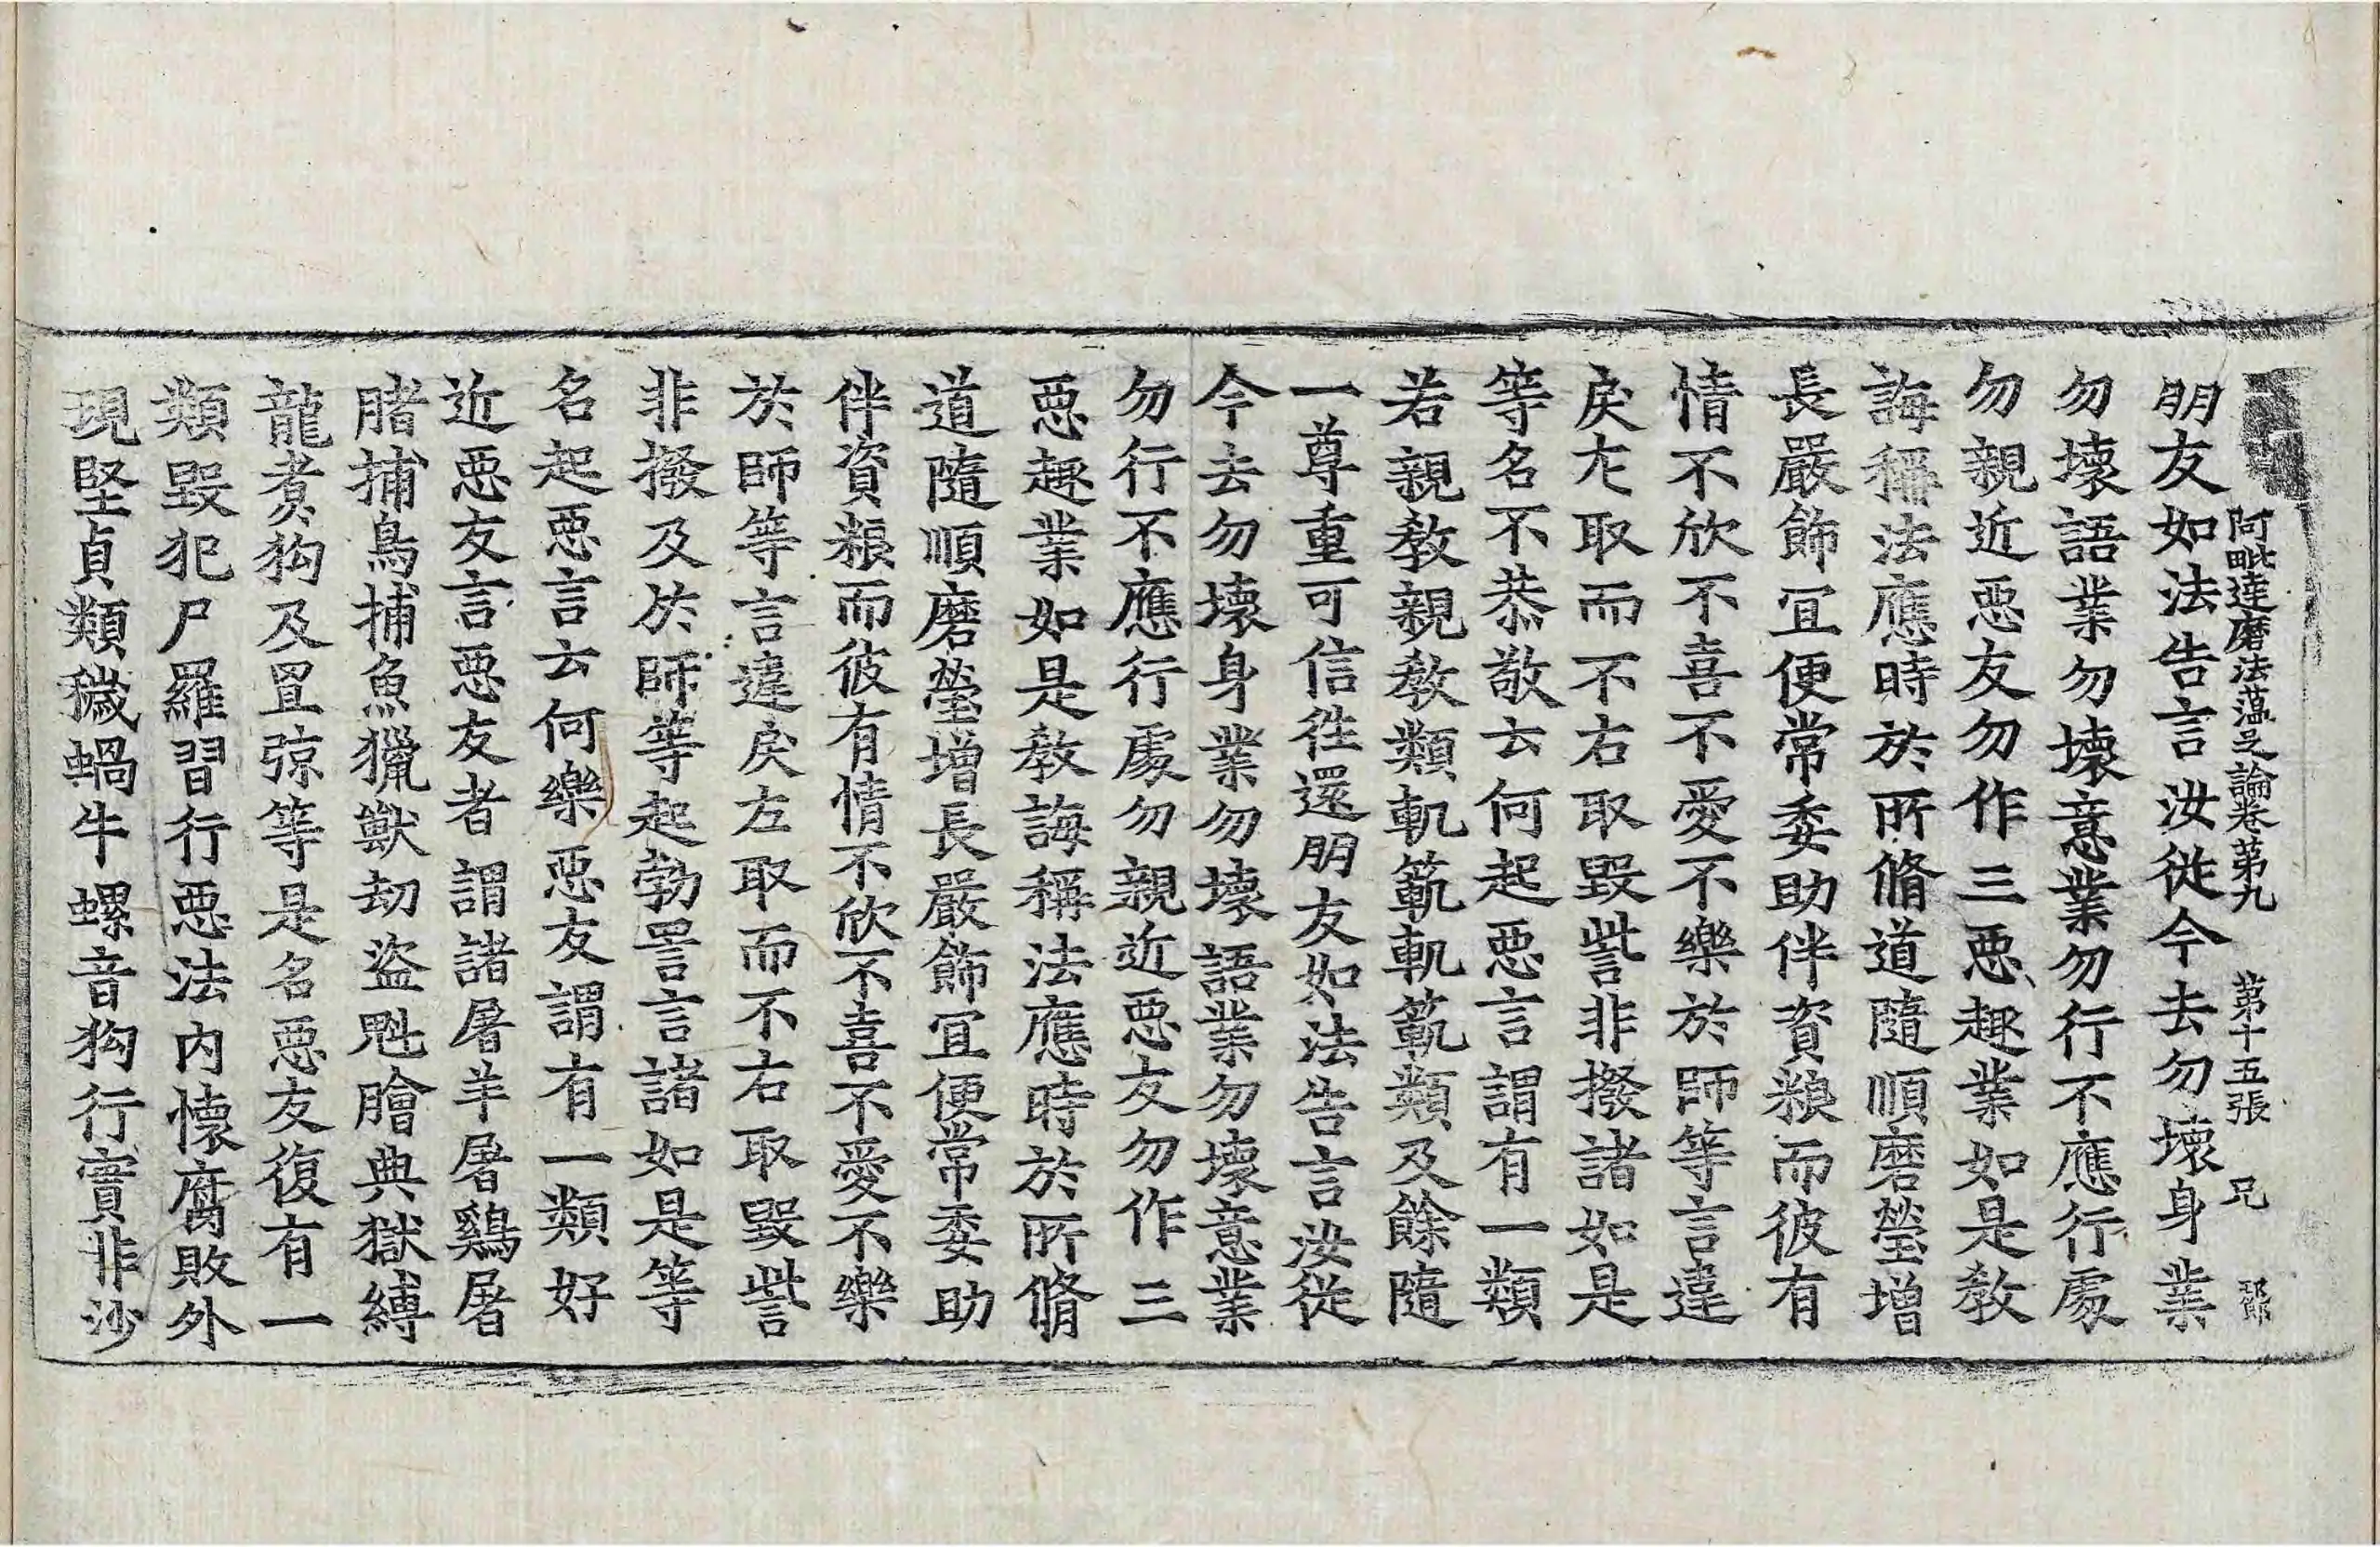 阿毗達磨法蘊足論卷第九 第十五張 兄
朋友如法告言汝從今去勿壞身業
勿壞語業勿壞意業勿行不應行處
勿親近惡友勿作三惡趣業如是教
誨稱法應時於所脩道隨順磨瑩增
長嚴飾冝便常委助伴資粮而彼有
情不欣不喜不愛不樂於師等言違
戾左取而不右取毀訾非撥諸如是
等名不恭敬云何起惡言謂有一類
若親教親教類軌範軌範類及餘隨
一尊重可信往還朋友如法告言汝從
今去勿壞身業勿壞語業勿壞意業
勿行不應行處勿親近惡友勿作三
惡趣業如是教誨稱法應時於所脩
道隨順磨瑩增長嚴飾冝便常委助
伴資粮而彼有情不欣不喜不愛不樂
於師等言違戾左取而不右取毀訾
非撥及於師等起勃詈言諸如是等
名起惡言云何樂惡友謂有一類好
近惡友言惡友者謂諸屠羊屠鷄屠
膳捕鳥捕魚獵獸劫盜魁膾典獄縛
龍煮狗及罝弶等是名惡友復有一
類毀犯尸羅習行惡法內懷腐敗外
現堅貞類穢蝸牛螺音狗行實非沙